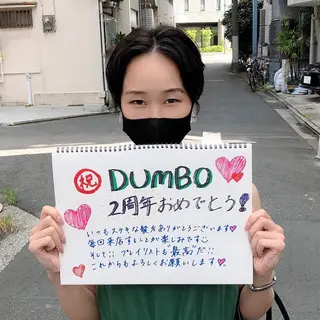 祝 DUMBO
2周年おめでとう!
いつもステキな髪型ありがとうございます♥
毎回来店することが楽しみです
そして、プレイリストも"最高"だ!!
これからもよろしくお願いします♥